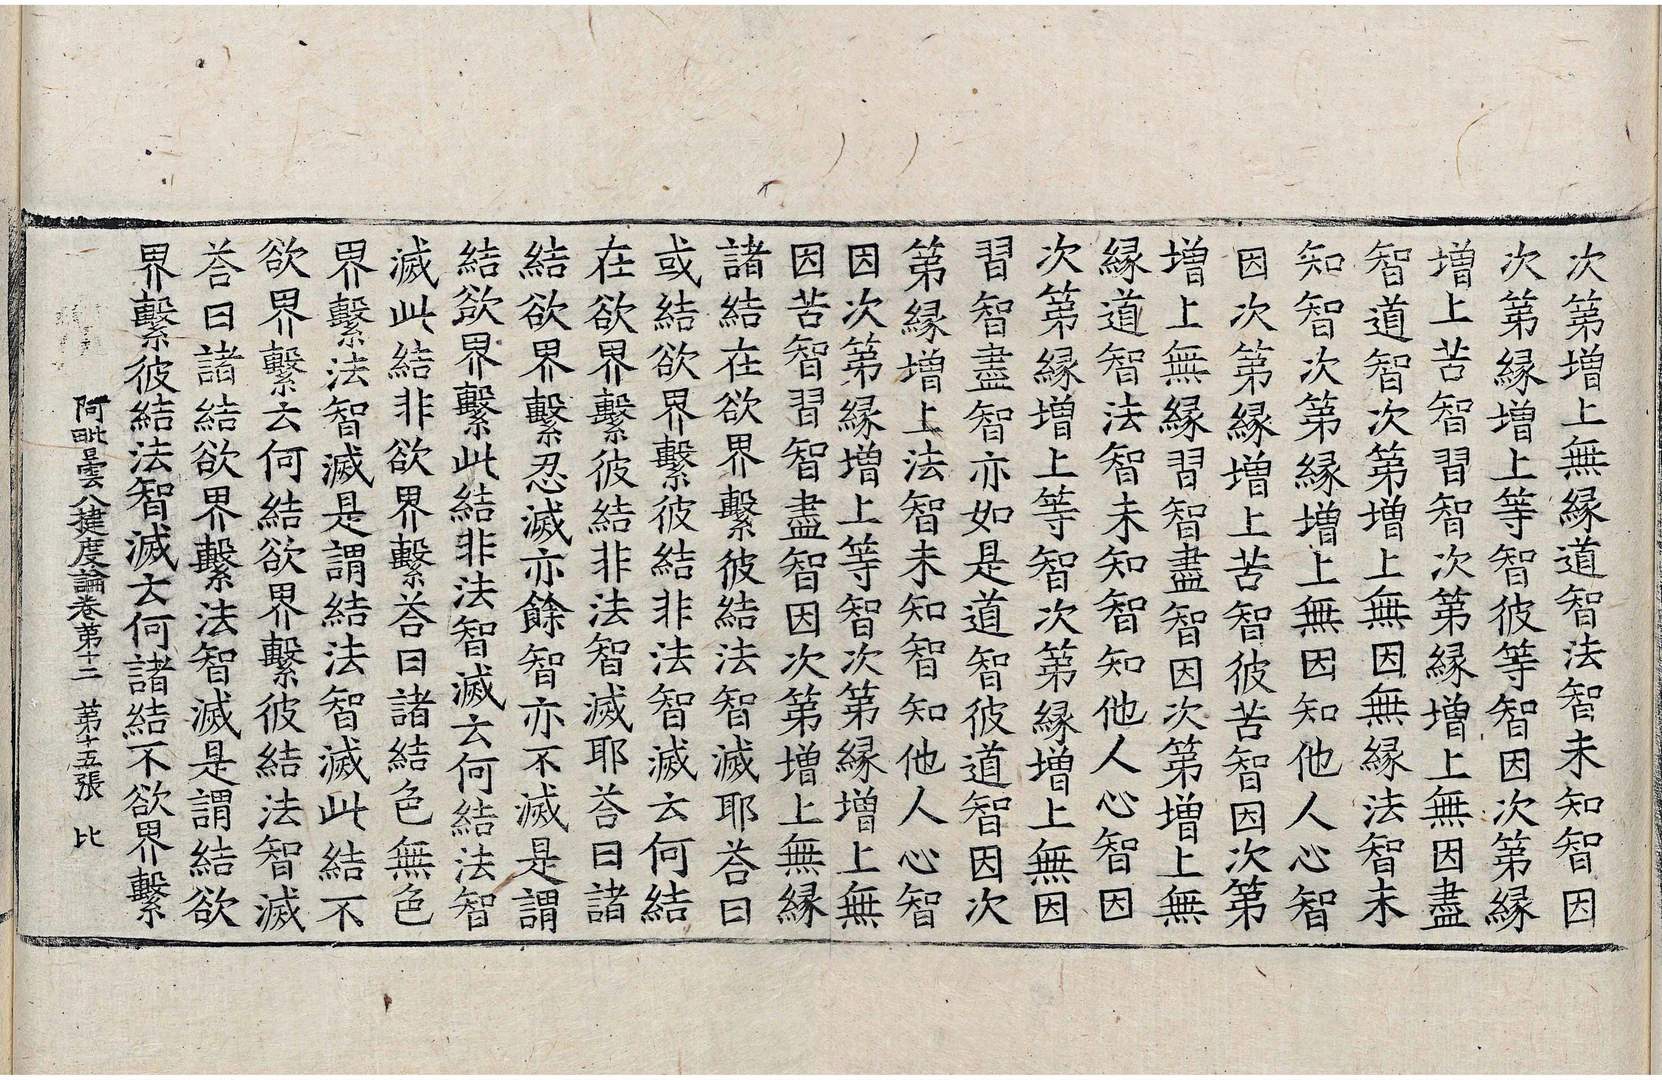 次第增上無縁道智法智未知智因
次第縁增上等智彼等智因次第縁
增上苦智習智次第縁增上無因盡
智道智次第增上無因無縁法智未
知智次第縁增上無因知他人心智
因次第縁增上苦智彼苦智因次第
增上無縁習智盡智因次第增上無
縁道智法智未知智知他人心智因
次第縁增上等智次第縁增上無因
習智盡智亦如是道智彼道智因次
第縁增上法智未知智知他人心智
因次第縁增上等智次第縁增上無
因苦智習智盡智因次第增上無縁
諸結在欲界繫彼結法智滅耶荅曰
或結欲界繫彼結非法智滅云何結
在欲界繫彼結非法智滅耶荅曰諸
結欲界繫忍滅亦餘智亦不滅是謂
結欲界繫此結非法智滅云何結法智
滅此結非欲界繫荅曰諸結色無色
界繫法智滅是謂結法智滅此結不
欲界繫云何結欲界繫彼結法智滅
荅曰諸結欲界繫法智滅是謂結欲
界繫彼結法智滅云何諸結不欲界繫
阿毗曇八揵度論卷第十二　第十五張　比